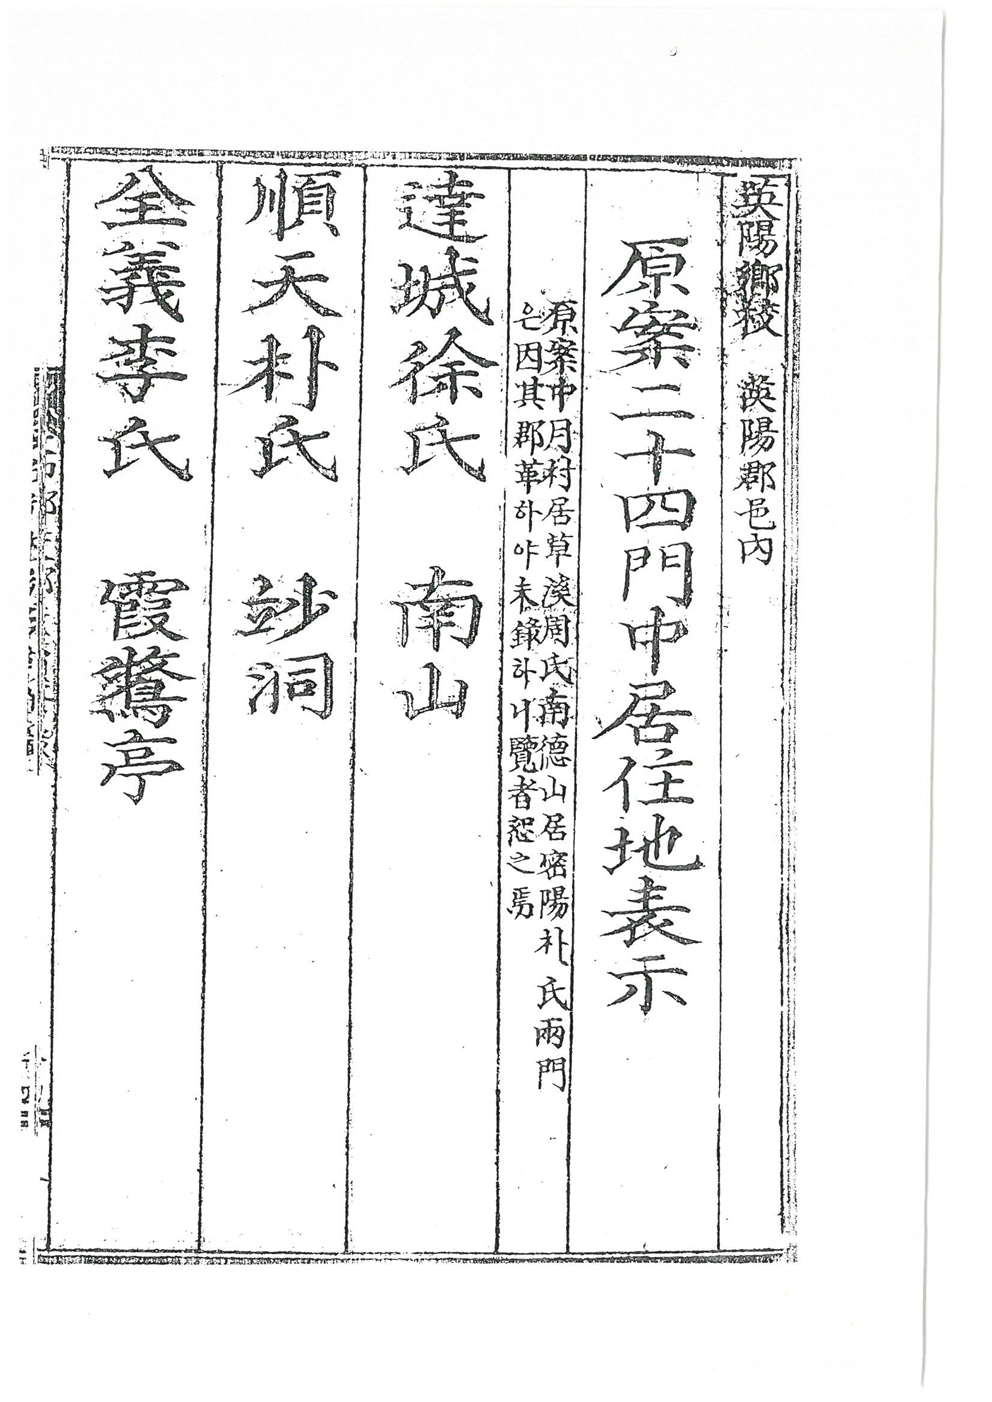 英陽鄕校 英陽郡邑內
原案二十四門中居住地表示
原案中月村居草溪周氏南德山居密陽朴氏兩門
은因其郡革하야未錄하니覽者恕之焉
達城徐氏 南山
順天朴氏 竗洞
全義李氏 霞鶩亭